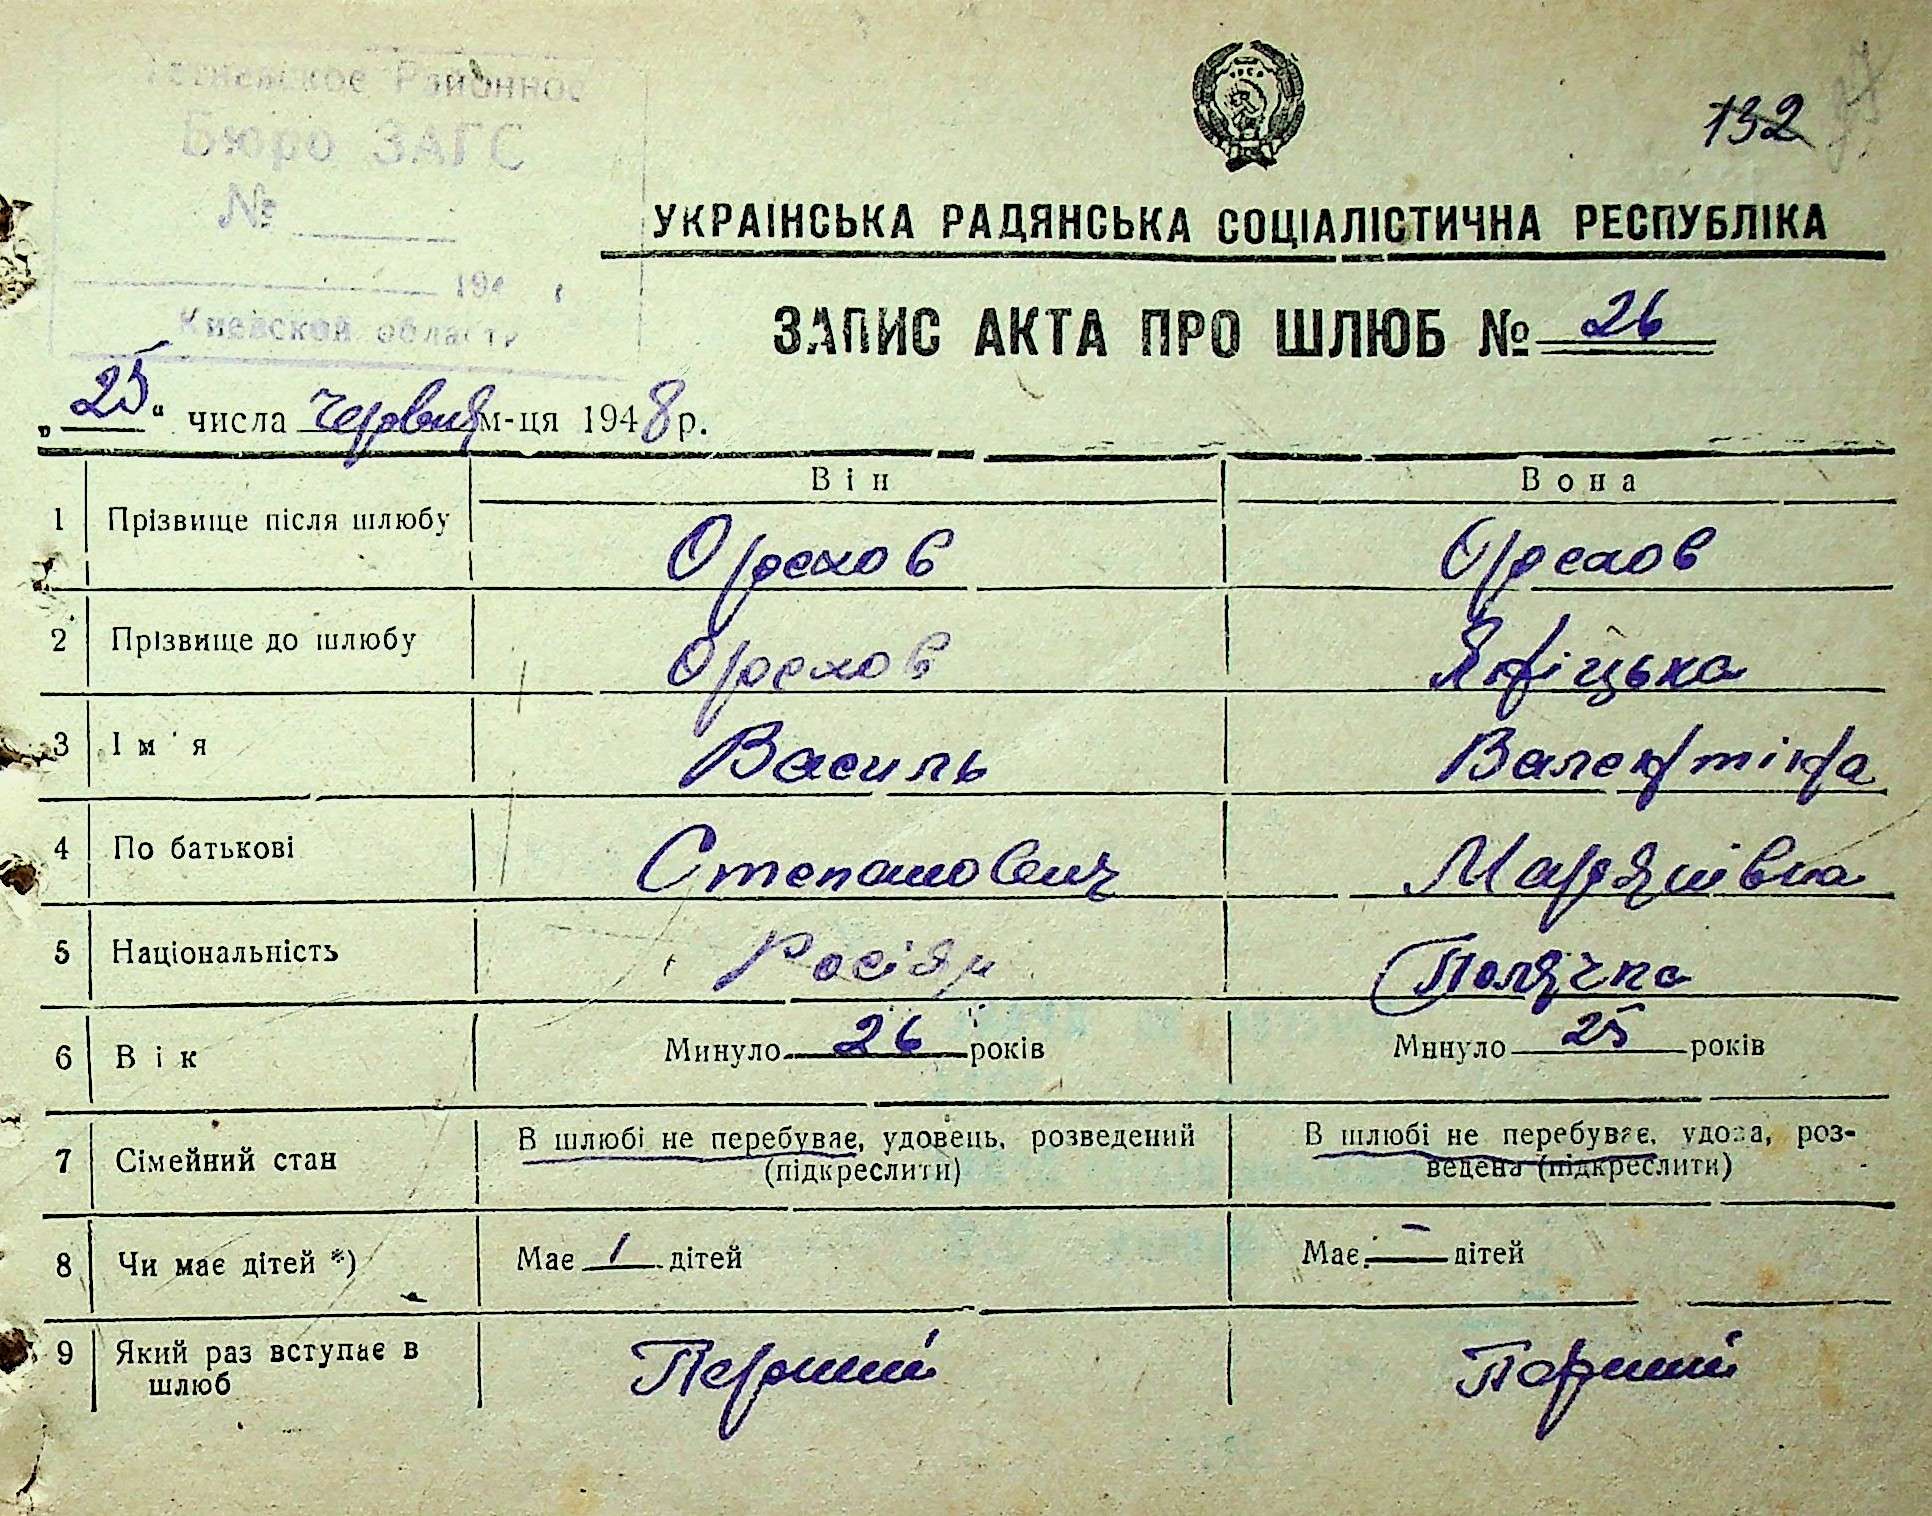 Районное
Бюро ЗАГС
№
194
Киевской области
132
УКРАЇНСЬКА РАДЯНСЬКА СОЦІАЛІСТИЧНА РЕСПУБЛІКА
ЗАПИС АКТА ПРО ШЛЮБ № 26
„25“ числа червня м-ця 1948 р.
Він Вона
1 Прізвище після шлюбу Орехов Орехов
2 Прізвище до шлюбу Орехов
3 Ім'я Василь Валентіна
4 По батькові Степанович Мар'янівна
5 Національність Росіян Полячка
6 Вік Минуло 26 років Минуло 25 років
7 Сімейний стан В шлюбі не перебуває, удовець, розведений (підкреслити) В шлюбі не перебуває, удова, роз-
ведена (підкреслити)
8 Чи має дітей *) Має 1 дітей Має — дітей
9 Який раз вступає в шлюб Перший Перший